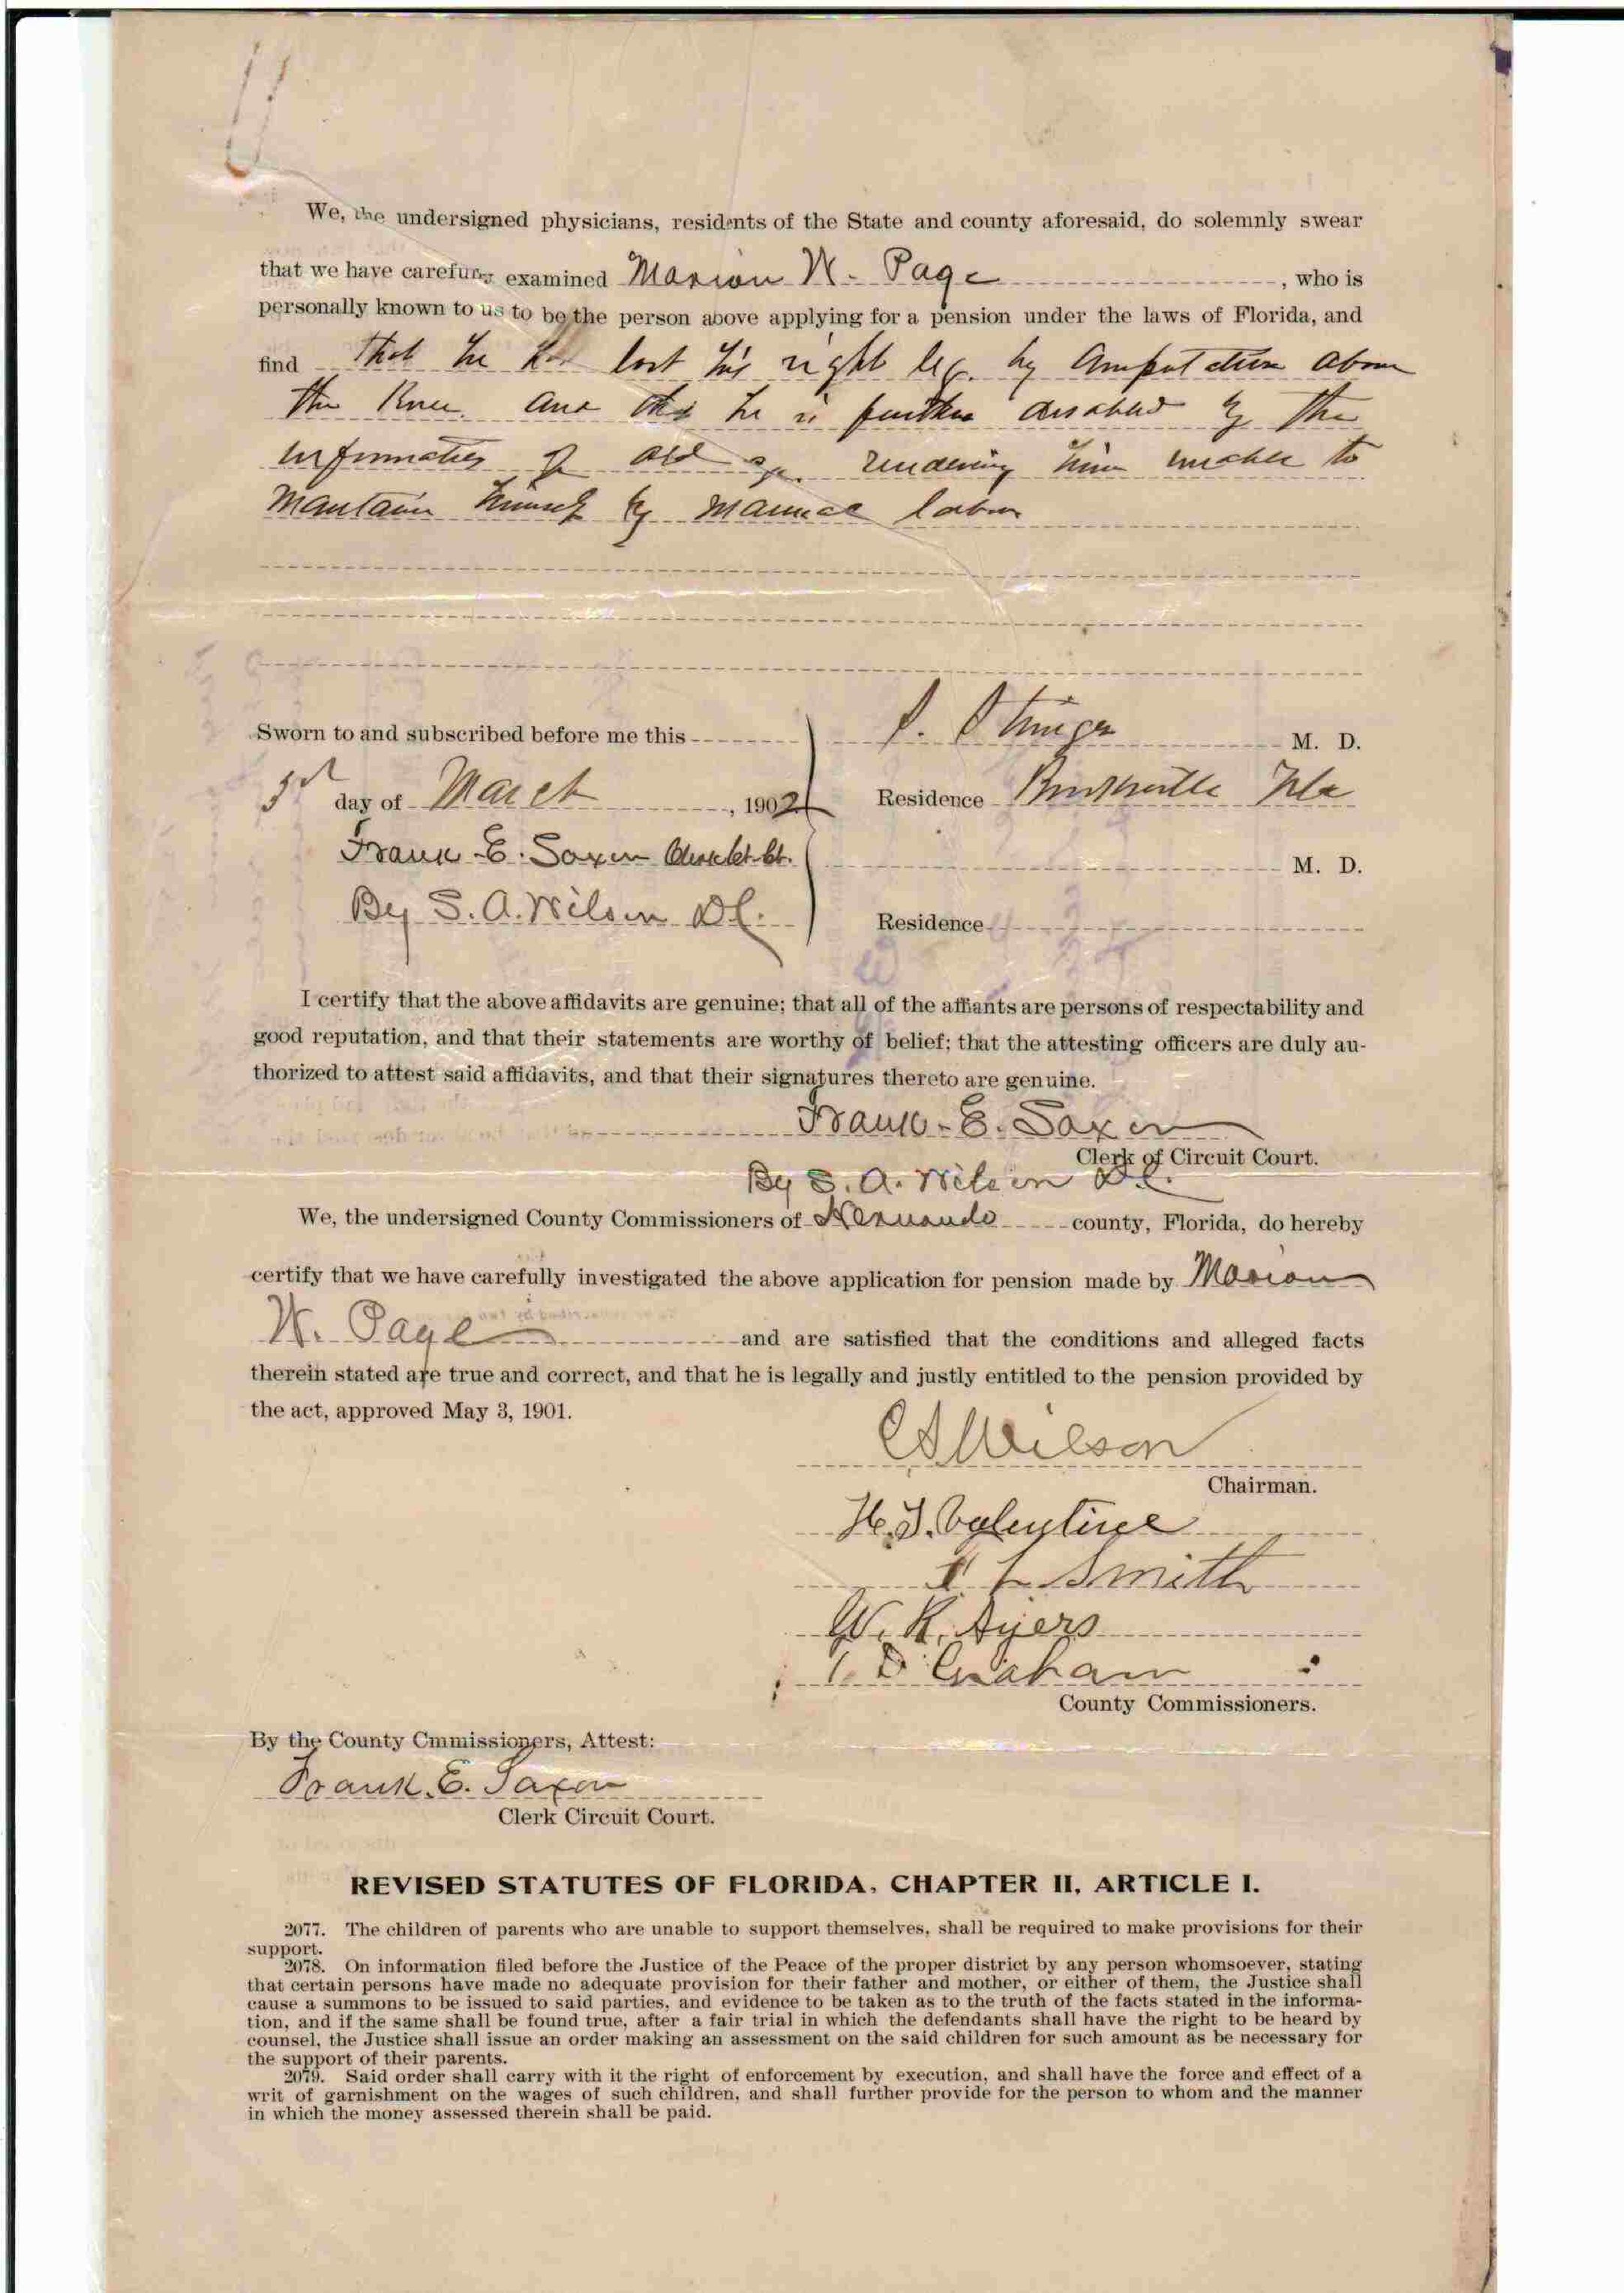 We, the undersigned physicians, residents of the State and county aforesaid, do solemnly swear
that we have carefully examined Marion W. Page, who is
personally known to us to be the person above applying for a pension under the laws of Florida, and
find that he has lost his right leg. by Amputation above
the Knee. and that he is further disabled by the
infirmities of old age. rendering him unable to
Mantain himself by manual labor
Sworn to and subscribed before me this
3rd day of March, 1902
Frank E. Saxon Clerk Ct. Ct.
By S. A. Wilson D.C.
S. Stringer M. D.
Residence Brooksville Fla
M. D.
Residence
I certify that the above affidavits are genuine; that all of the affiants are persons of respectability and
good reputation, and that their statements are worthy of belief; that the attesting officers are duly au-
thorized to attest said affidavits, and that their signatures thereto are genuine.
Frank E. Saxon
Clerk of Circuit Court.
By S. A. Wilson D.C.
We, the undersigned County Commissioners of Hernando county, Florida, do hereby
certify that we have carefully investigated the above application for pension made by Marion
W. Page and are satisfied that the conditions and alleged facts
therein stated are true and correct, and that he is legally and justly entitled to the pension provided by
the act, approved May 3, 1901.
Wilson
Chairman.
Valentine
Smith
W. R. Ayers
Graham
County Commissioners.
By the County Cmmissioners, Attest:
Frank. E. Saxon
Clerk Circuit Court.
REVISED STATUTES OF FLORIDA, CHAPTER II, ARTICLE I.
2077. The children of parents who are unable to support themselves, shall be required to make provisions for their
support.
2078. On information filed before the Justice of the Peace of the proper district by any person whomsoever, stating
that certain persons have made no adequate provision for their father and mother, or either of them, the Justice shall
cause a summons to be issued to said parties, and evidence to be taken as to the truth of the facts stated in the informa-
tion, and if the same shall be found true, after a fair trial in which the defendants shall have the right to be heard by
counsel, the Justice shall issue an order making an assessment on the said children for such amount as be necessary for
the support of their parents.
2079. Said order shall carry with it the right of enforcement by execution, and shall have the force and effect of a
writ of garnishment on the wages of such children, and shall further provide for the person to whom and the manner
in which the money assessed therein shall be paid.